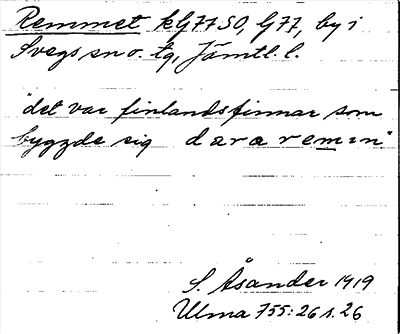 Remmet kG77SO, G77, by i
Svegs sn o. tg, Jämtl. l.
"det var finlandsfinnar som
byggde sig dara remin"
S. Åsander 1919
Ulma 755:26 s. 26